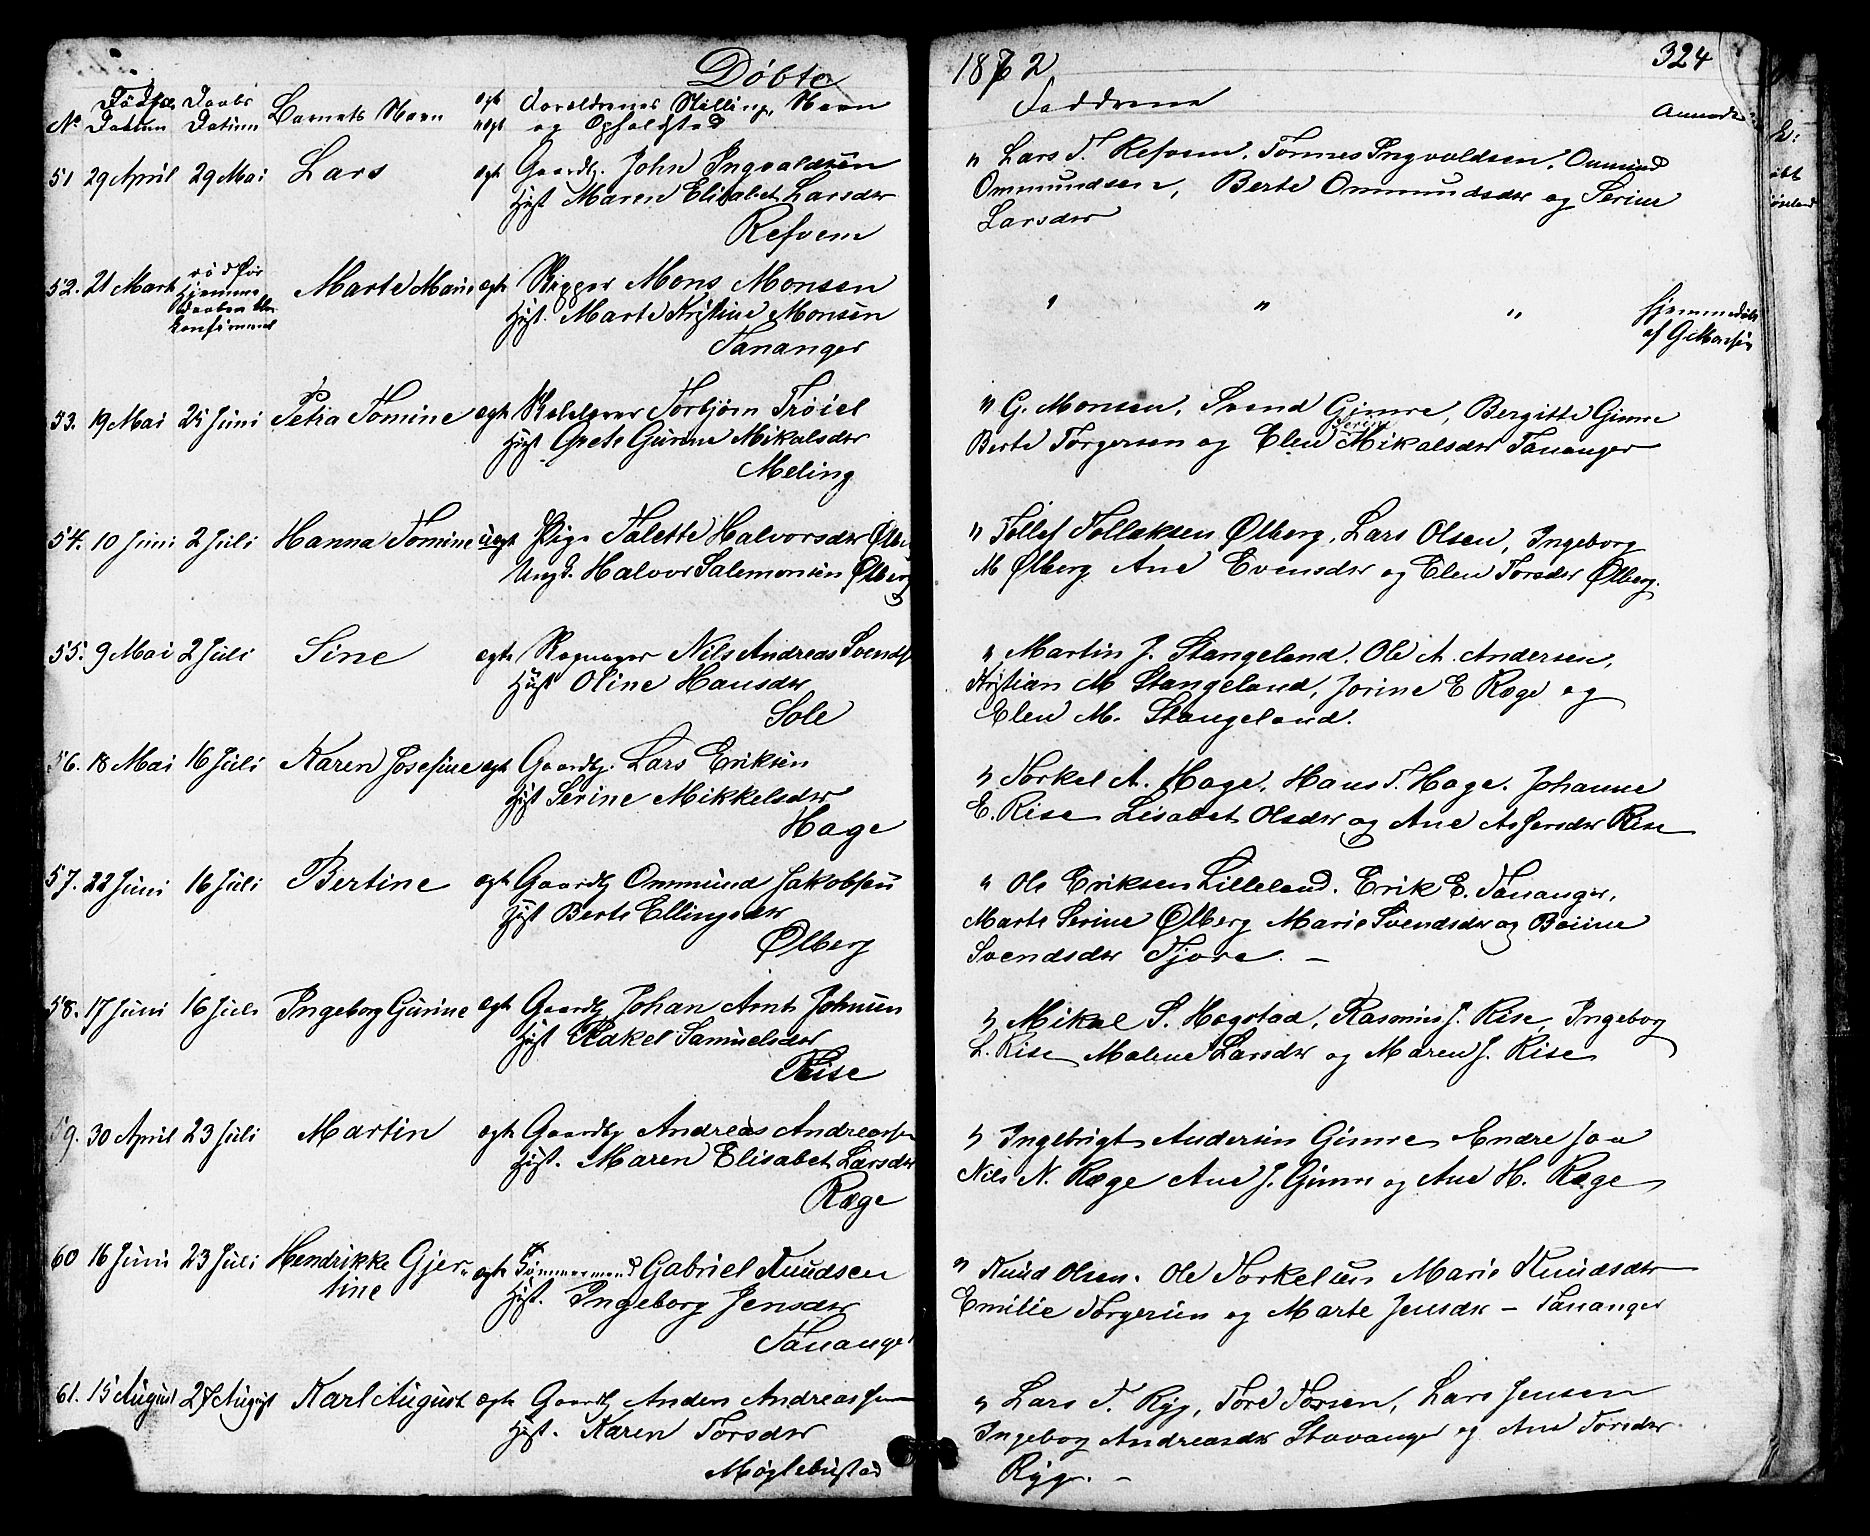 Døbte
1872
324
No Fødsels Datum Daabs Datum Barnets Navn egt uegt Foreldrenes Stilling, Navn og Opholdsted
Faddrene
51 29 April 29 Mai Lars egt Gaardbr. John Ingvaldsen
Hust Maren Elisabet Larsdtr
Refvem
" Lars T. Refvem, Tonnes Ingvaldsen, Ommund
Ommundsen, Berte Ommundsdtr og Serine
Larsdtr
52. 21 Marts død før Hjemme Daaben blev konfirmeret Marte Marie egt Skipper Mons Monsen
Hust. Marte Kristine Monsen
Tananger
" " " Hjemmedøbt
af G. Monsen
53. 19 Mai 25 Juni Petra Tomine egt Skolelærer Torbjørn Trøiel
Hust Grete Gurine Mikalsdtr
Meling
" G. Monsen, Svend Gimre, Bergitte Gimre
Berte Torgersen og Elen Serine Mikalsdtr Tananger
54. 10 Juni 2 Juli Hanna Tomine uegt Pige Talette Halvorsdtr Ølb
Ungk. Halvor Salemonsen Ølberg
" Tollef Tollaksen Ølberg, Lars Olsen, Ingeborg
M Ølberg Ane Evensdtr og Elen Torsdtr Ølberg.
55. 9 Mai 2 Juli Sine egt Nils Andreas Svends
Hust Oline Hansdtr
Sole
" Martin J. Stangeland. Ole A. Andersen,
Kristian M Stangeland, Jorine E Ræge og
Elen M. Stangeland.
56. 18 Mai 16 Juli Karen Josefine egt Gaardbr. Lars Eriksen
Hust Serine Mikkelsdtr
Hage
" Torkel A. Hage, Hans T. Hage. Johanne
E. Risе Lisabet Olsdtr og Ane Risе
57. 22 Juni 16 Juli Bertine egt Gaardbr Ommund Jakobsen
Hust Berte Ellingsdtr
Ølberg
" Ole Eriksen Lilleland. Erik E. Tananger,
Marte Serine Ølberg Marie Svendsdtr og
Svendsdtr Tjora. –
58. 17 Juni 16 Juli Ingeborg Gurine egt Gaardbr Johan Arnt Johnsen
Hust Rakel Samuelsdtr
Rise
" Mikal S. Hogstad, Rasmus J. Rise, Ingeborg
L. Rise Malene Larsdtr og Maren J. Rise
59. 30 April 23 Juli Martin egt Gaardbr Andreas Andreassen
Hust. Maren Elisabet Larsdtr
Ræge
" Ingebrigt Andersen Gimre Endre Joa
Nils N. Ræge Ane J. Gimre og Ane H. Ræge
60 16 Juni 23 Juli Hendrikke Gjer-
tine egt Tømmermand Gabriel Knudsen
Hust. Ingeborg Jensdtr
Tananger
" Knud Olsen. Ole Torkelsen Marie Knudsdtr
Emilie Torgersen og Marte Jensdtr – Tananger
61. 15 August 27 August Karl August egt Gaardbr Anders Andreassen
Hust. Karen Torsdtr
Møglebustad
" Lars T. Ryg, Tore Torsen, Lars Jensen
Ingeborg Andreasdtr Stavanger og Ane Torsdtr
Ryg. –